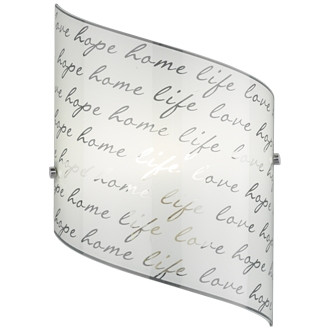 love hope home life love
hope home life love hope
hope home life love hope
hope home life love hope
hope home life love hope
hope home life love hope
hope home life love